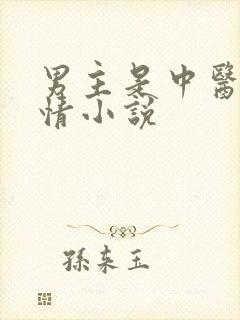 男主是中醫
情小說
孫來玉